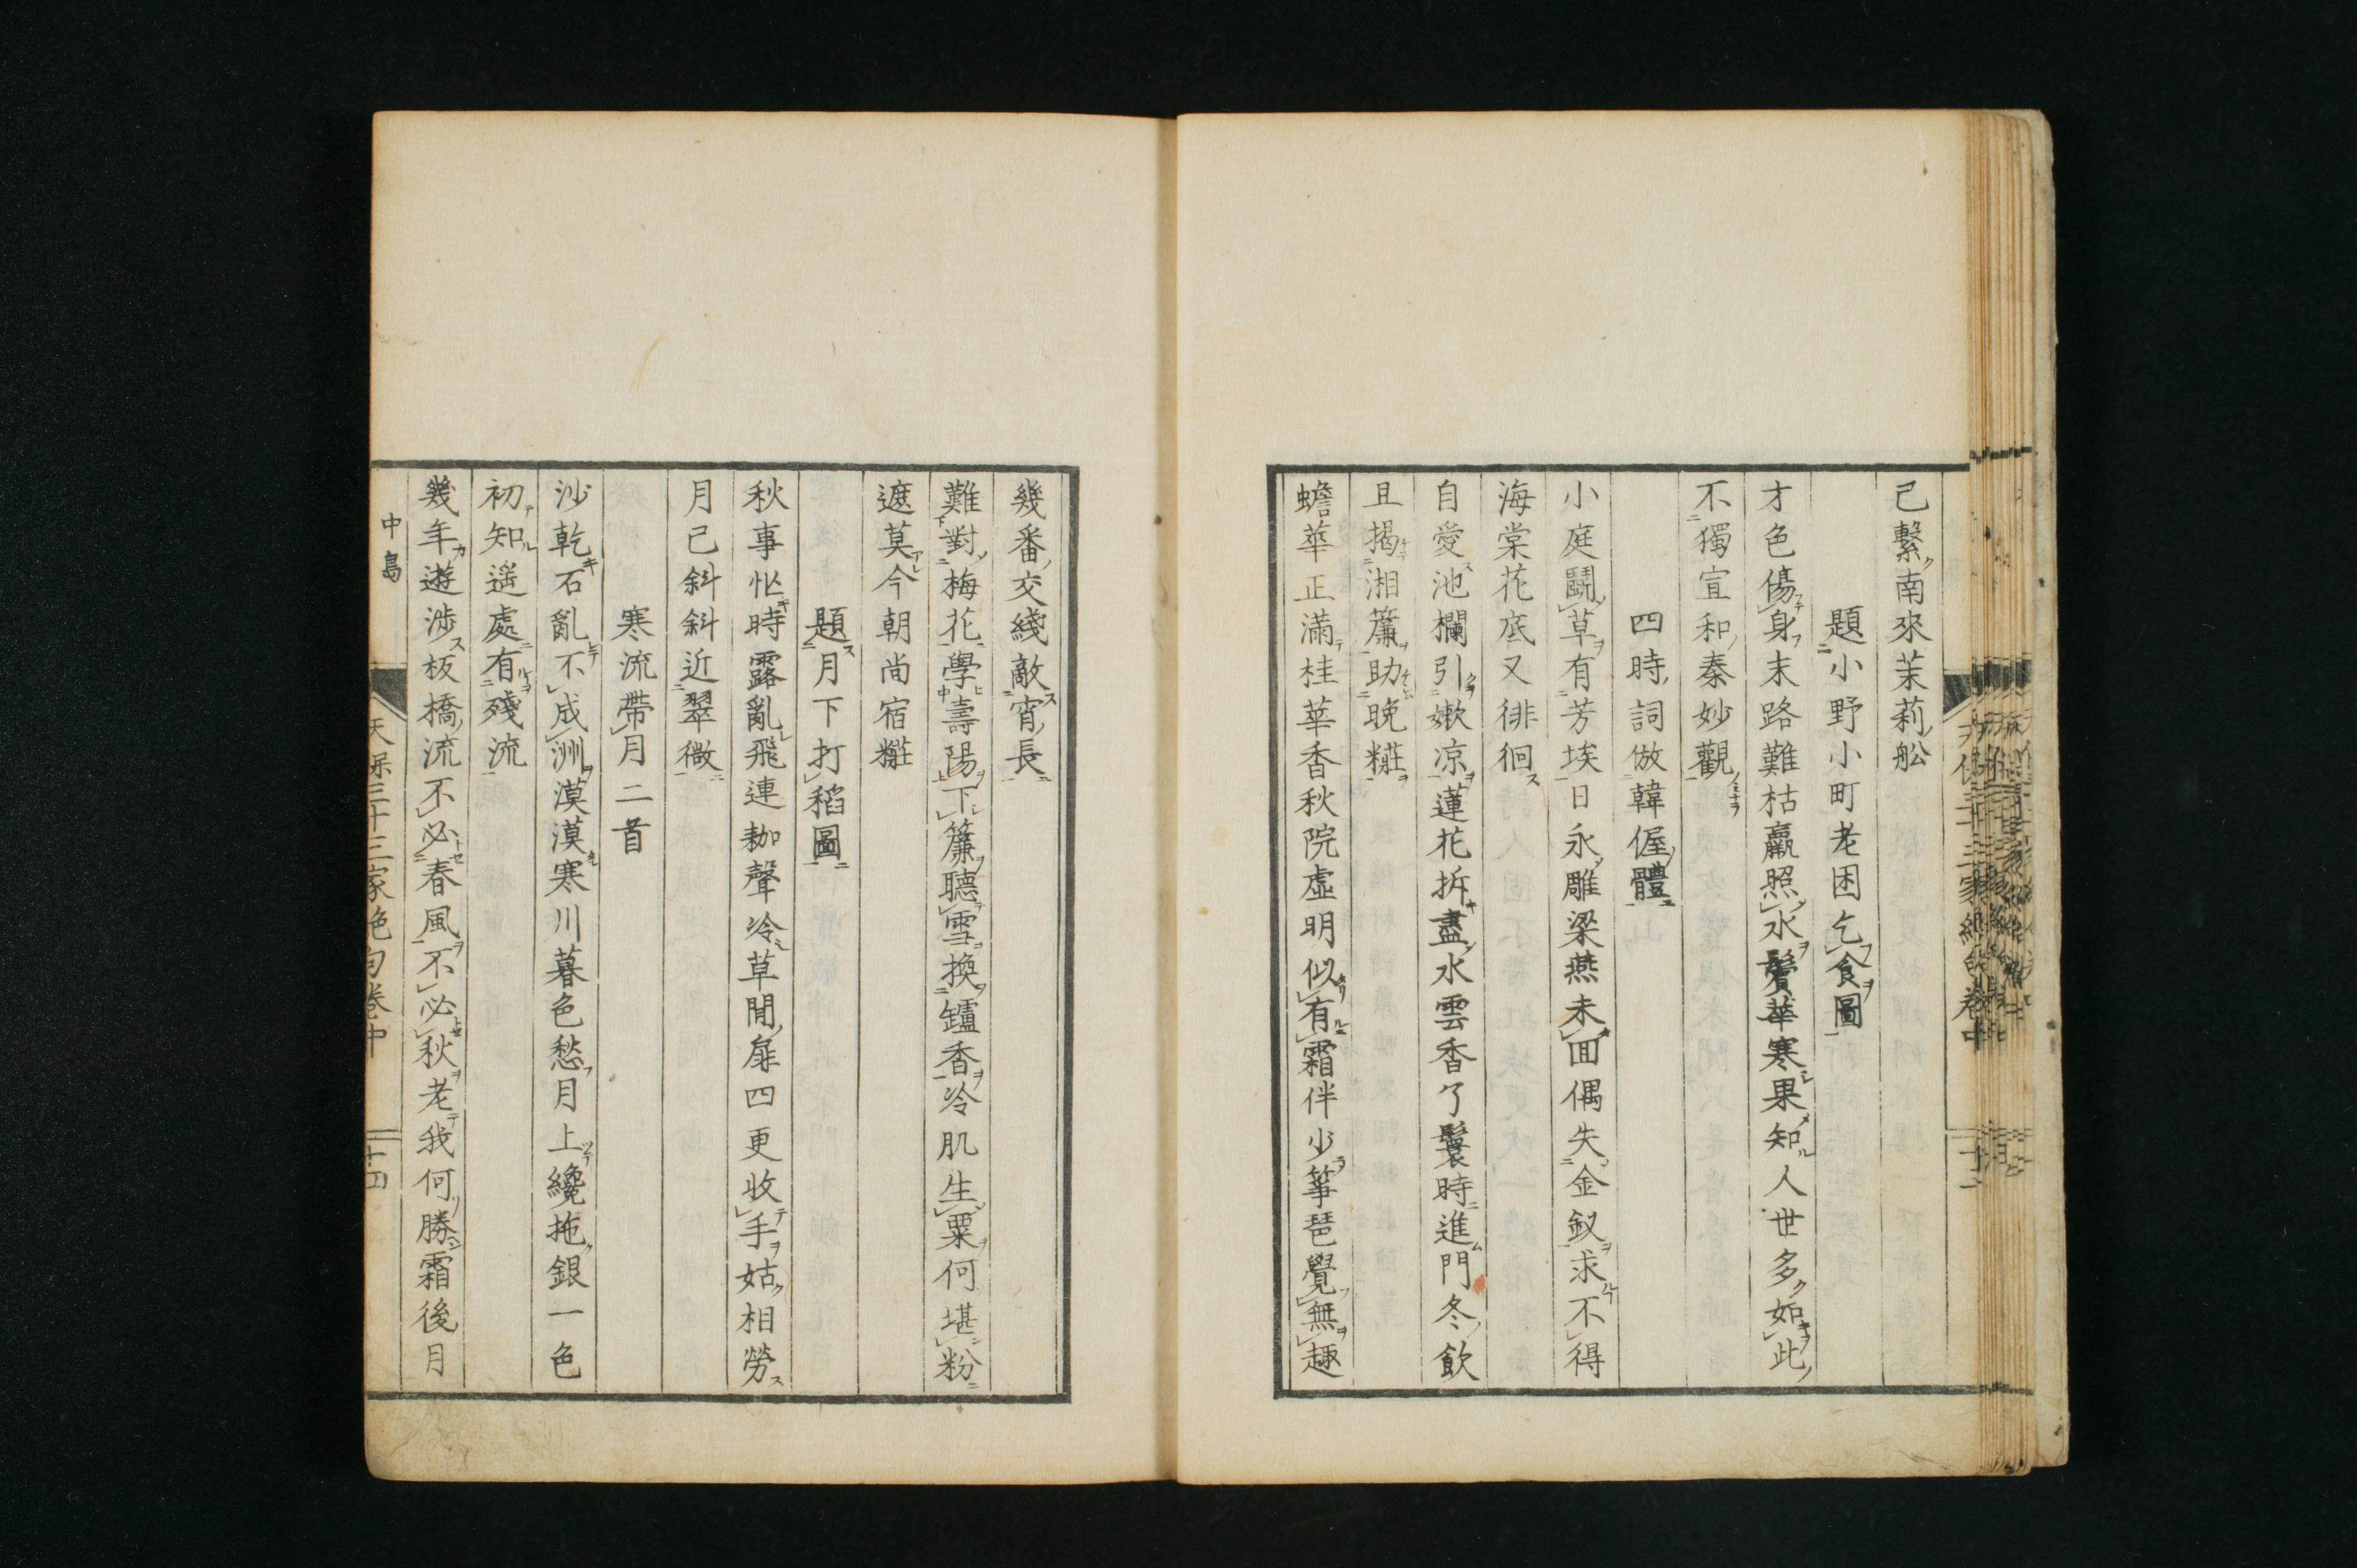 己繫南來茉莉舩
題小野小町老困乞食圖
才色傷身末路難枯羸照水鬢華寒果知人世多如此
不獨宣和秦妙觀
四時詞倣韓偓體
小庭鬪草有芳埃日永雕梁燕未回偶失金釵求不得
海棠花底又徘徊
自愛池欄引嫩凉蓮花拆盡水雲香了鬟時進門冬飲
且揭湘簾助晚糚
蟾華正滿桂華香秋院虛明似有霜伴少箏琶覺無趣
幾番交綫敵宵長
難對梅花學壽陽下簾聽雪換鑪香冷肌生粟何堪粉
遮莫今朝尚宿糚
題月下打稻圖
秋事忙時露亂飛連耞聲冷草閒扉四更收手姑相勞
月已斜斜近翠微
寒流帶月二首
沙乾石亂不成洲漠漠寒川暮色愁月上纔拖銀一色
初知遥處有殘流
幾年遊涉板橋流不必春風不必秋老我何勝霜後月
中島
天保三十三家絶句卷中
十四